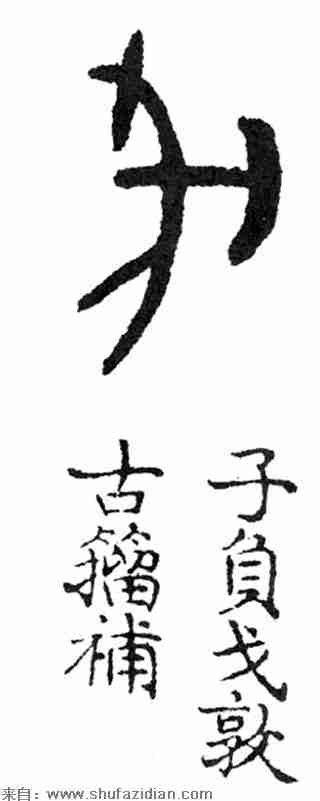 戈
子負戈敦
古籀補
来自：www.shufazidian.com